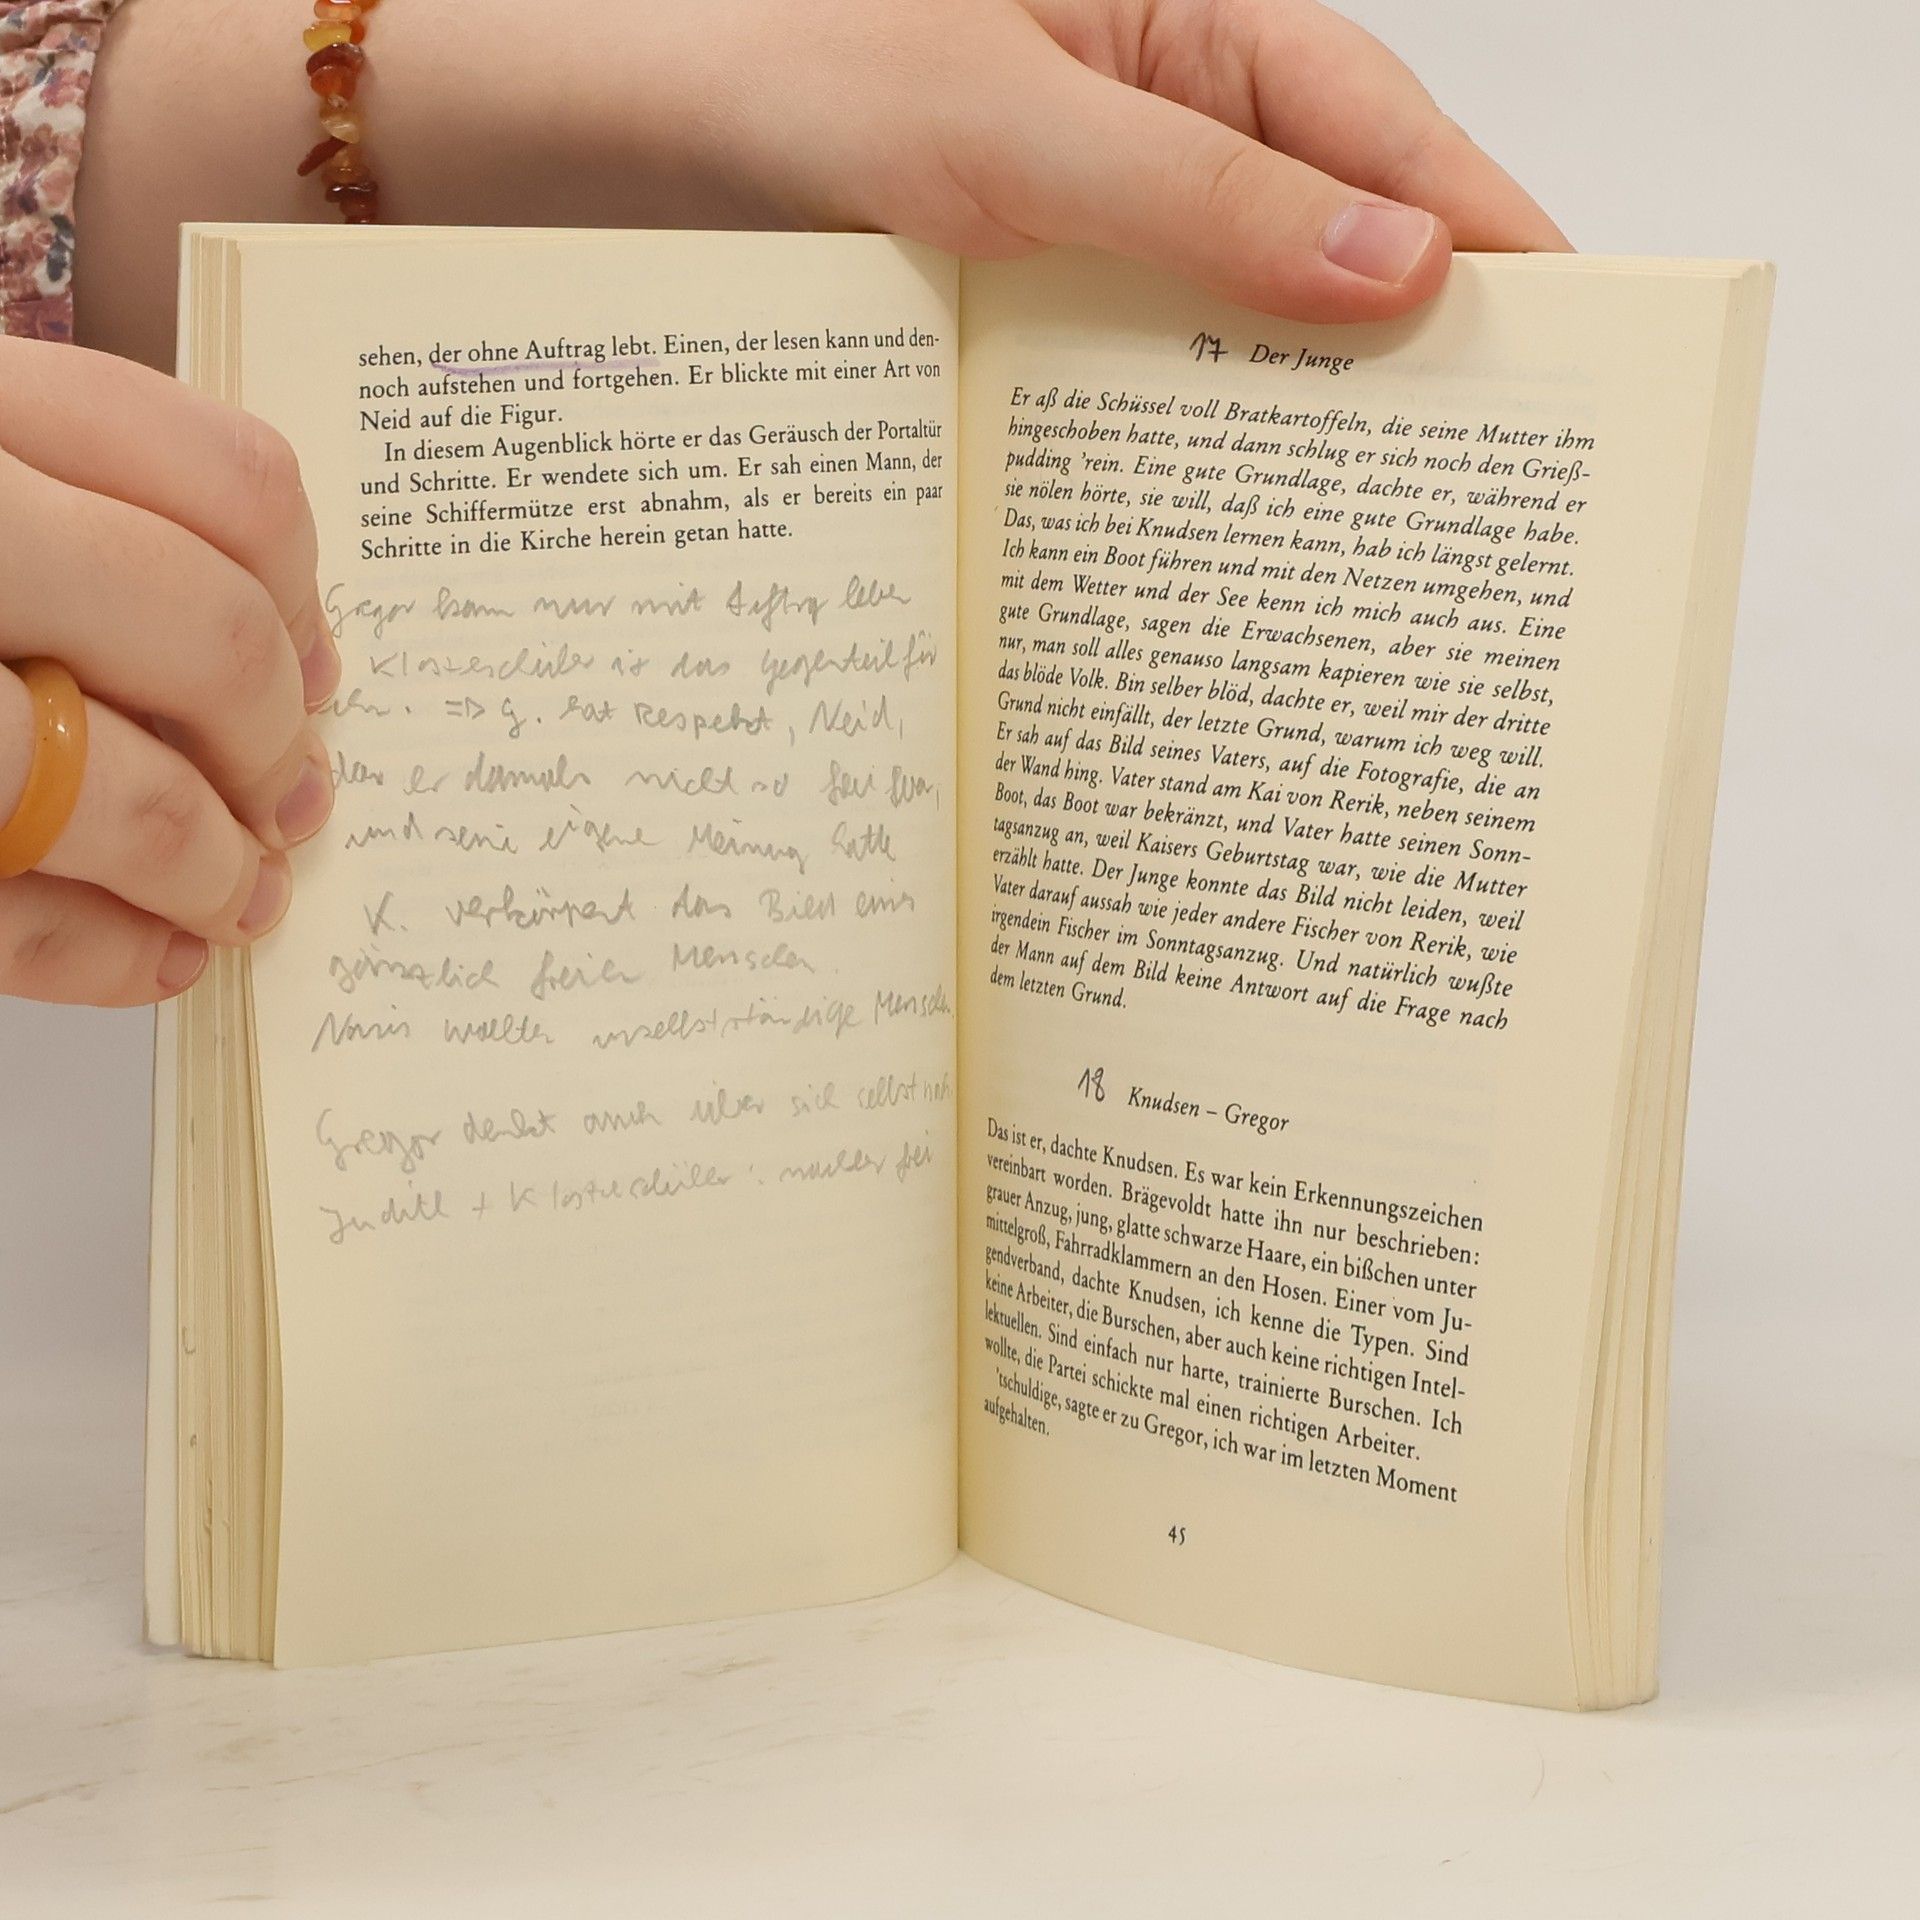 sehen, der ohne Auftrag lebt. Einen, der lesen kann und den-
noch aufstehen und fortgehen. Er blickte mit einer Art von
Neid auf die Figur.
In diesem Augenblick hörte er das Geräusch der Portaltür
und Schritte. Er wendete sich um. Er sah einen Mann, der
seine Schiffermütze erst abnahm, als er bereits ein paar
Schritte in die Kirche herein getan hatte.
Gregor kann nur mit leben
Klosterschüler ist das Gegenteil für
ihn. => G. hat Respekt, Neid,
das er damals nicht so frei war,
und seine eigene Meinung hatte
K. verkörpert das Bild eines
gänzlich freien Menschen.
Nazis wollten unselbstständige Menschen.
Gregor denkt auch über sich selbst nach
Judith + Klosterschüler: wollen frei
17 Der Junge
Er aß die Schüssel voll Bratkartoffeln, die seine Mutter ihm
hingeschoben hatte, und dann schlug er sich noch den Grieß-
pudding ’rein. Eine gute Grundlage, dachte er, während er
sie nölen hörte, sie will, daß ich eine gute Grundlage habe.
Das, was ich bei Knudsen lernen kann, hab ich längst gelernt.
Ich kann ein Boot führen und mit den Netzen umgehen, und
mit dem Wetter und der See kenn ich mich auch aus. Eine
gute Grundlage, sagen die Erwachsenen, aber sie meinen
nur, man soll alles genauso langsam kapieren wie sie selbst,
das blöde Volk. Bin selber blöd, dachte er, weil mir der dritte
Grund nicht einfällt, der letzte Grund, warum ich weg will.
Er sah auf das Bild seines Vaters, auf die Fotografie, die an
der Wand hing. Vater stand am Kai von Rerik, neben seinem
Boot, das Boot war bekränzt, und Vater hatte seinen Sonn-
tagsanzug an, weil Kaisers Geburtstag war, wie die Mutter
erzählt hatte. Der Junge konnte das Bild nicht leiden, weil
Vater darauf aussah wie jeder andere Fischer von Rerik, wie
irgendein Fischer im Sonntagsanzug. Und natürlich wußte
der Mann auf dem Bild keine Antwort auf die Frage nach
dem letzten Grund.
18 Knudsen – Gregor
Das ist er, dachte Knudsen. Es war kein Erkennungszeichen
vereinbart worden. Brägevoldt hatte ihn nur beschrieben:
grauer Anzug, jung, glatte schwarze Haare, ein bißchen unter
mittelgroß, Fahrradklammern an den Hosen. Einer vom Ju-
gendverband, dachte Knudsen, ich kenne die Typen. Sind
keine Arbeiter, die Burschen, aber auch keine richtigen Intel-
lektuellen. Sind einfach nur harte, trainierte Burschen. Ich
wollte, die Partei schickte mal einen richtigen Arbeiter.
’tschuldige, sagte er zu Gregor, ich war im letzten Moment
aufgehalten.
45